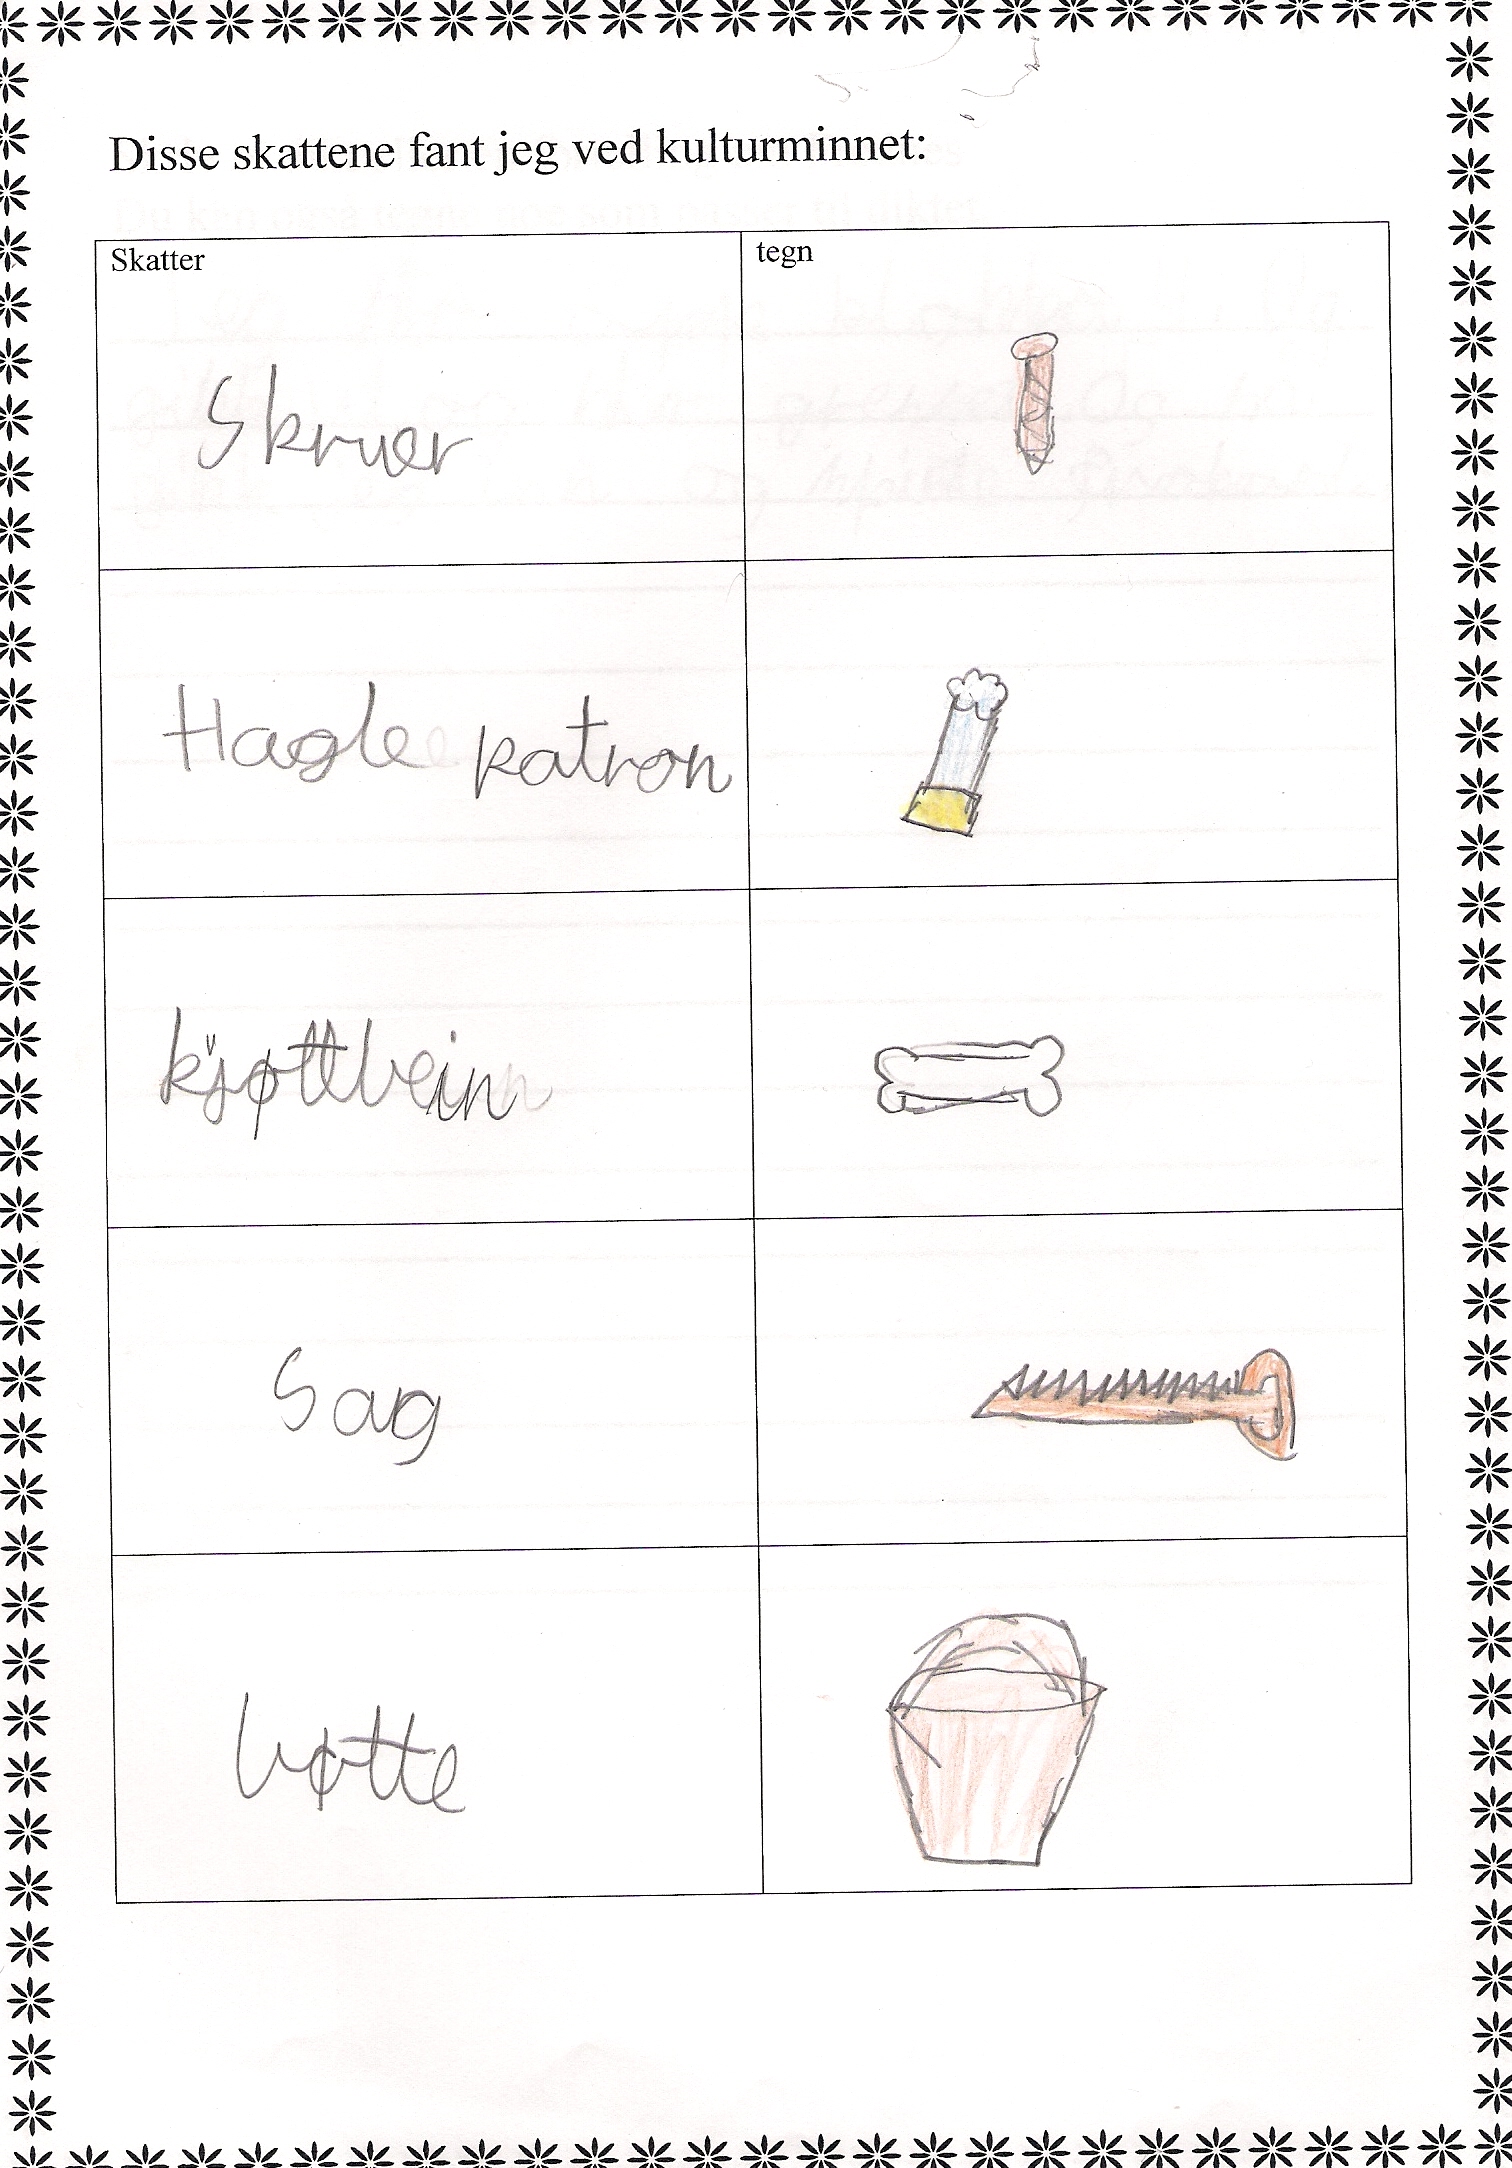 Disse skattene fant jeg ved kulturminnet:
Skatter tegn
Skruer
Hagle patron
kjøttbein
Sag
bøtte